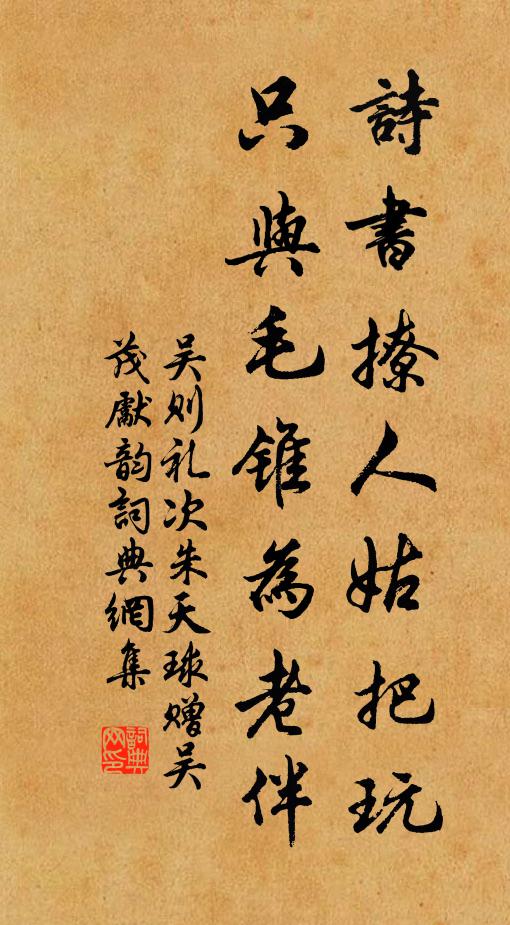 詩書撩人姑把玩
只與毛錐為老伴
吴则礼次朱天球赠吴
茂獻韵詞典網集
詞典网印